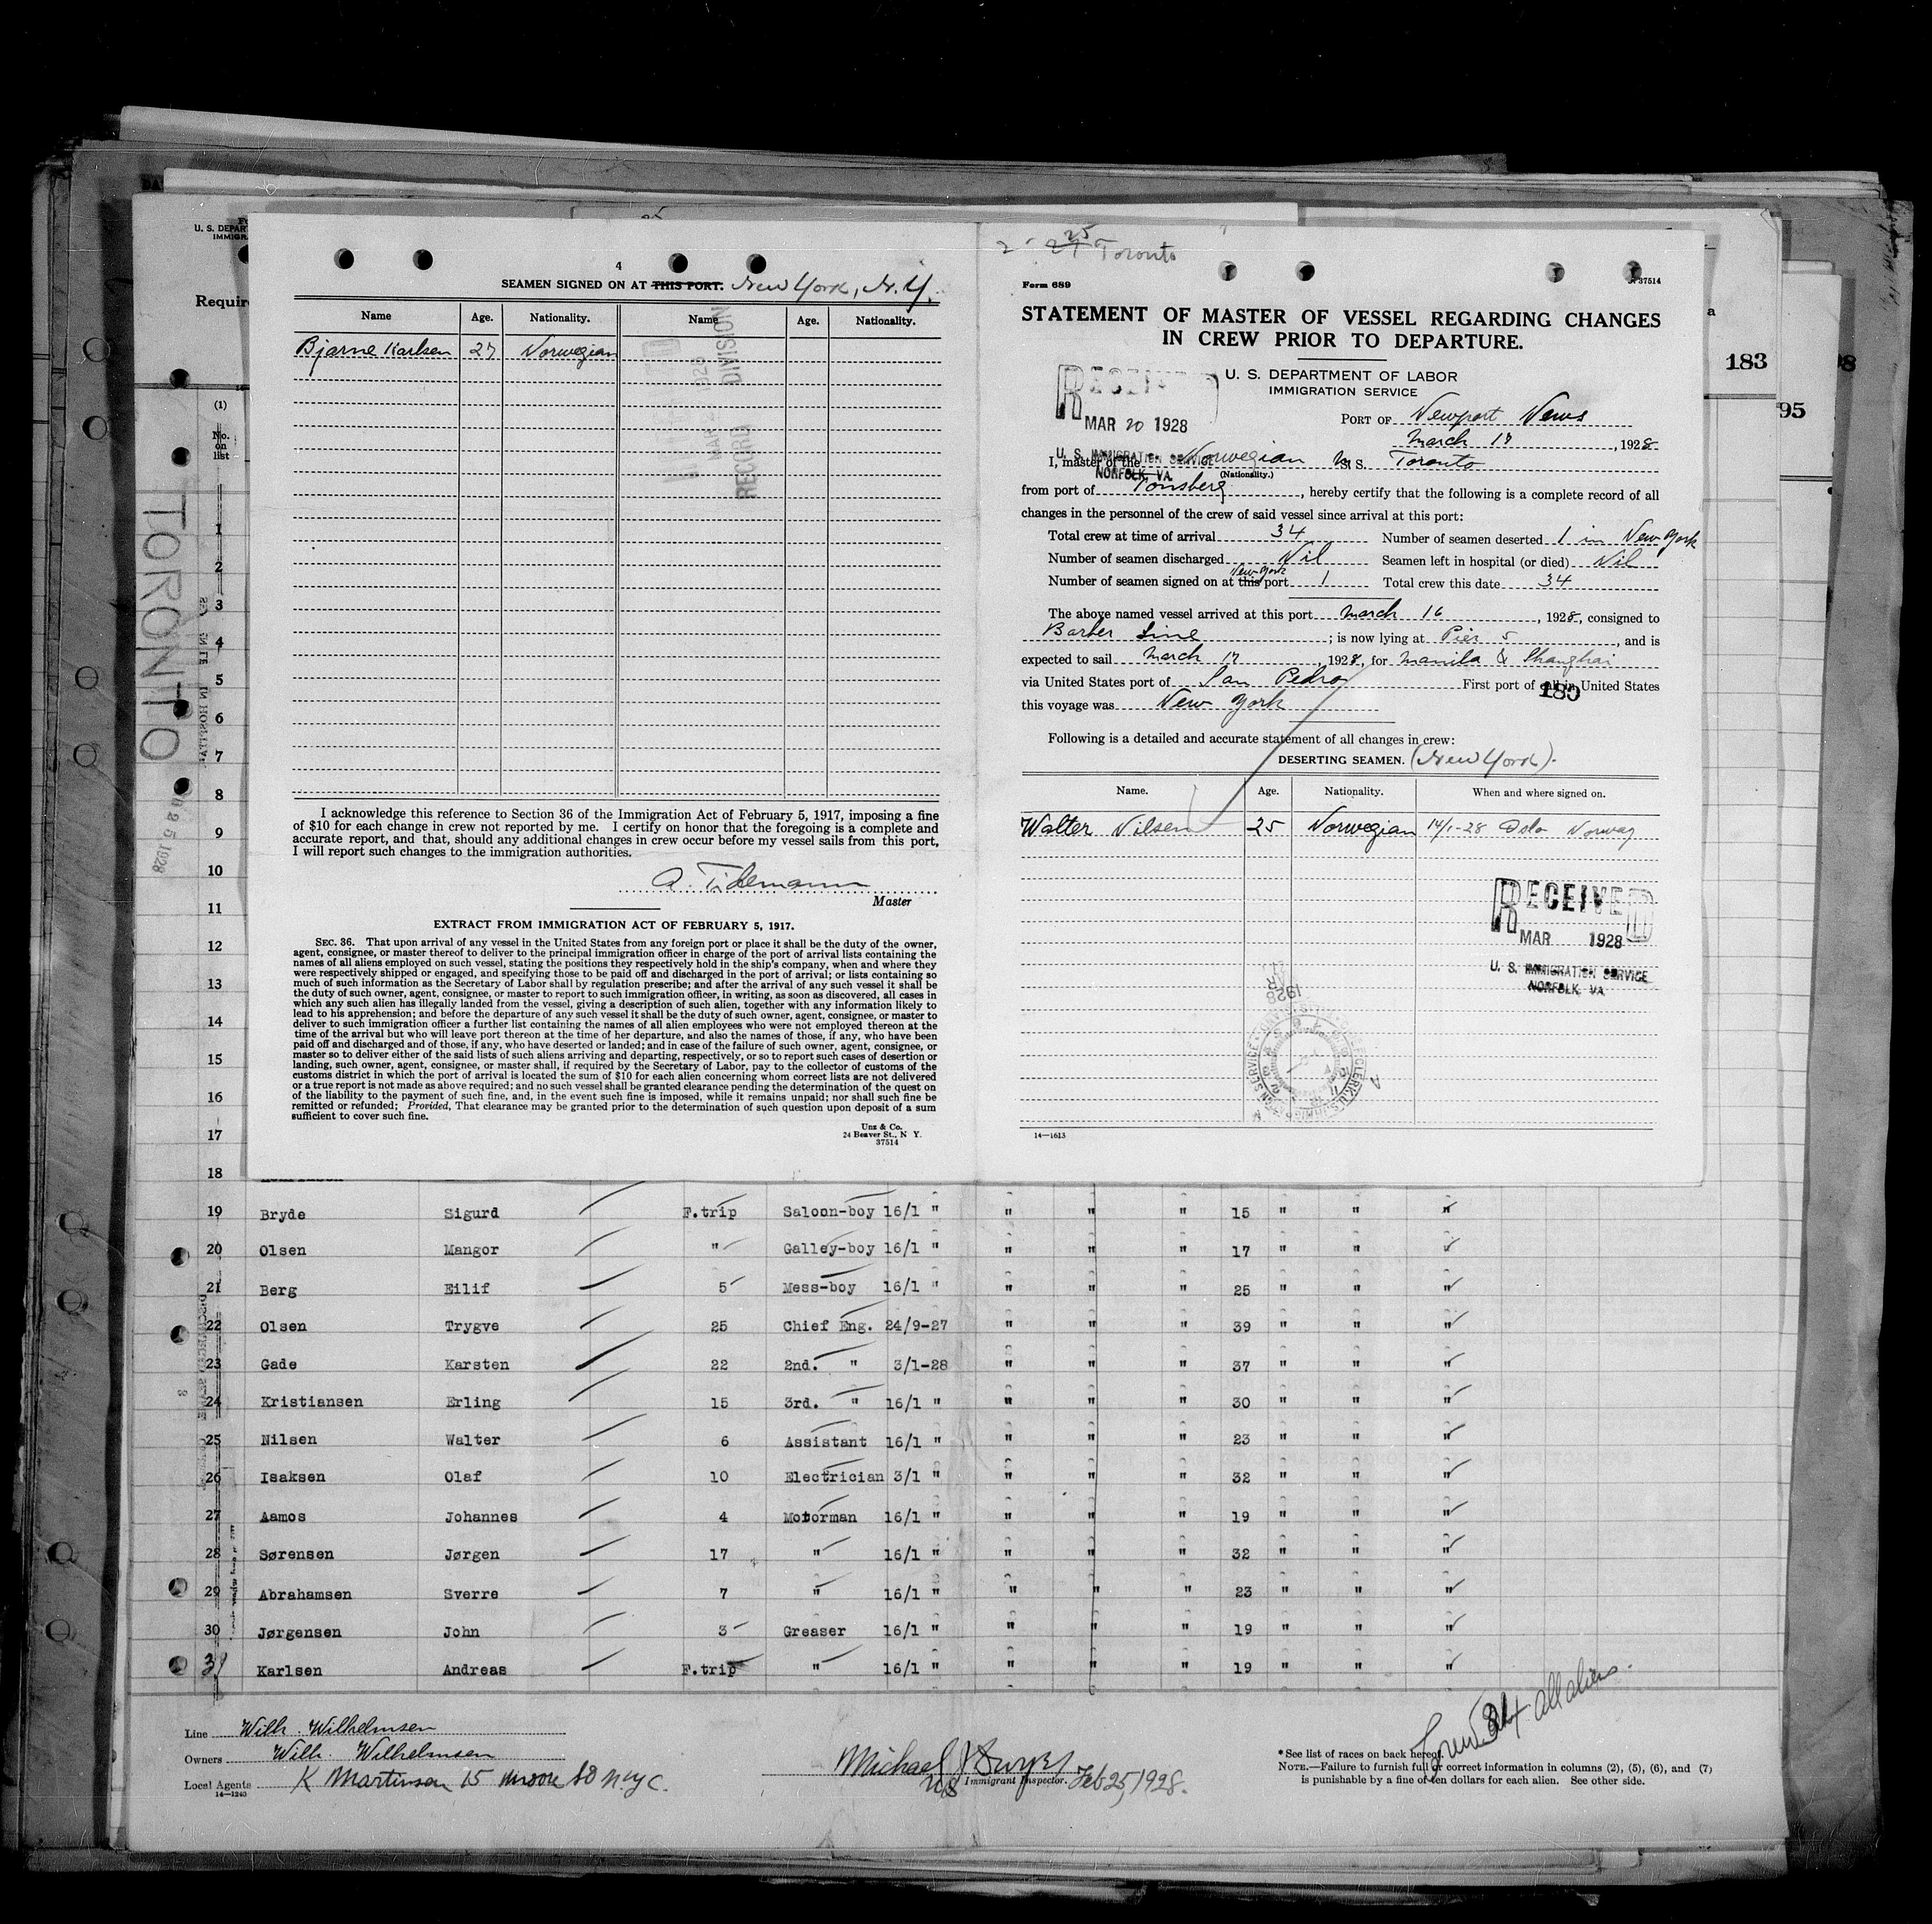 4
SEAMEN SIGNED ON AT THIS PORT. New York, N.Y.
Name Age. Nationality. Name Age. Nationality.
Bjarne Karlsen 27 Norwegian
RECORD DIVISION
I acknowledge this reference to Section 36 of the Immigration Act of February 5, 1917, imposing a fine
of $10 for each change in crew not reported by me. I certify on honor that the foregoing is a complete and
accurate report, and that, should any additional changes in crew occur before my vessel sails from this port,
I will report such changes to the immigration authorities.
A. Tidemann
Master
EXTRACT FROM IMMIGRATION ACT OF FEBRUARY 5, 1917.
SEC. 36. That upon arrival of any vessel in the United States from any foreign port or place it shall be the duty of the owner,
agent, consignee, or master thereof to deliver to the principal immigration officer in charge of the port of arrival lists containing the
names of all aliens employed on such vessel, stating the positions they respectively hold in the ship's company, when and where they
were respectively shipped or engaged, and specifying those to be paid off and discharged in the port of arrival; or lists containing so
much of such information as the Secretary of Labor shall by regulation prescribe; and after the arrival of any such vessel it shall be
the duty of such owner, agent, consignee, or master to report to such immigration officer, in writing, as soon as discovered, all cases in
which any such alien has illegally landed from the vessel, giving a description of such alien, together with any information likely to
lead to his apprehension; and before the departure of any such vessel it shall be the duty of such owner, agent, consignee, or master to
deliver to such immigration officer a further list containing the names of all alien employees who were not employed thereon at the
time of the arrival but who will leave port thereon at the time of her departure, and also the names of those, if any, who have been
paid off and discharged and of those, if any, who have deserted or landed; and in case of the failure of such owner, agent, consignee, or
master so to deliver either of the said lists of such aliens arriving and departing, respectively, or so to report such cases of desertion or
landing, such owner, agent, consignee, or master shall, if required by the Secretary of Labor, pay to the collector of customs of the
customs district in which the port of arrival is located the sum of $10 for each alien concerning whom correct lists are not delivered
or a true report is not made as above required; and no such vessel shall be granted clearance pending the determination of the quest on
of the liability to the payment of such fine, and, in the event such fine is imposed, while it remains unpaid; nor shall such fine be
remitted or refunded; Provided, That clearance may be granted prior to the determination of such question upon deposit of a sum
sufficient to cover such fine.
Unz & Co.
24 Beaver St., N Y.
37514
25 Toronto
Form 689
37514
STATEMENT OF MASTER OF VESSEL REGARDING CHANGES
IN CREW PRIOR TO DEPARTURE.
U. S. DEPARTMENT OF LABOR
IMMIGRATION SERVICE
RECEIVED
MAR 20 1928
U. S. IMMIGRATION SERVICE
NORFOLK, VA.
PORT OF Newport News
March 17, 1928
I, master of the Norwegian M S. Toronto
(Nationality.)
from port of Tonsberg, hereby certify that the following is a complete record of all
changes in the personnel of the crew of said vessel since arrival at this port:
Total crew at time of arrival 34 Number of seamen deserted 1 in New York
Number of seamen discharged Nil Seamen left in hospital (or died) Nil
Number of seamen signed on at this port New York 1 Total crew this date 34
The above named vessel arrived at this port March 16, 1928, consigned to
Barber Line; is now lying at Pier 5, and is
expected to sail March 17, 1928, for Manila & Shanghai
via United States port of San Pedro First port of call in United States
this voyage was New York
Following is a detailed and accurate statement of all changes in crew:
DESERTING SEAMEN. (New York).
Name. Age. Nationality. When and where signed on.
Walter Nilsen 25 Norwegian 14/1-28 Oslo Norway
RECEIVED
MAR 1928
U. S. IMMIGRATION SERVICE
NORFOLK, VA.
14—1613
U. S. DEPAR
IMMIGR
Require
183
95
TORONTO
(1)
No.
on
list
1
2
3
4
5
6
7
8
9
10
11
12
13
14
15
16
17
18
19 Bryde Sigurd F.trip Saloon-boy 16/1 " " " " 15 " " "
20 Olsen Mangor " Galley-boy 16/1 " " " " 17 " " "
21 Berg Eilif 5 Mess-boy 16/1 " " " " 25 " " "
22 Olsen Trygve 25 Chief Eng. 24/9-27 " " " 39 " " "
23 Gade Karsten 22 2nd. " 3/1-28 " " " 37 " " "
24 Kristiansen Erling 15 3rd. " 16/1 " " " " 30 " " "
25 Nilsen Walter 6 Assistant 16/1 " " " " 23 " " "
26 Isaksen Olaf 10 Electrician 3/1 " " " " 32 " " "
27 Aamos Johannes 4 Motorman 16/1 " " " " 19 " " "
28 Sørensen Jørgen 17 " 16/1 " " " " 32 " " "
29 Abrahamsen Sverre 7 " 16/1 " " " " 23 " " "
30 Jørgensen John 3 Greaser 16/1 " " " " 19 " " "
31 Karlsen Andreas F.trip " 16/1 " " " " 19 " " "
Line Wilh. Wilhelmsen
Owners Wilh. Wilhelmsen
Local Agents K Martinsen 15 Moore St NYC.
14—1240
Michael J Dwyer
Immigrant Inspector. Feb 25, 1928.
all aliens.
*See list of races on back hereof.
NOTE.—Failure to furnish full or correct information in columns (2), (5), (6), and (7)
is punishable by a fine of ten dollars for each alien. See other side.